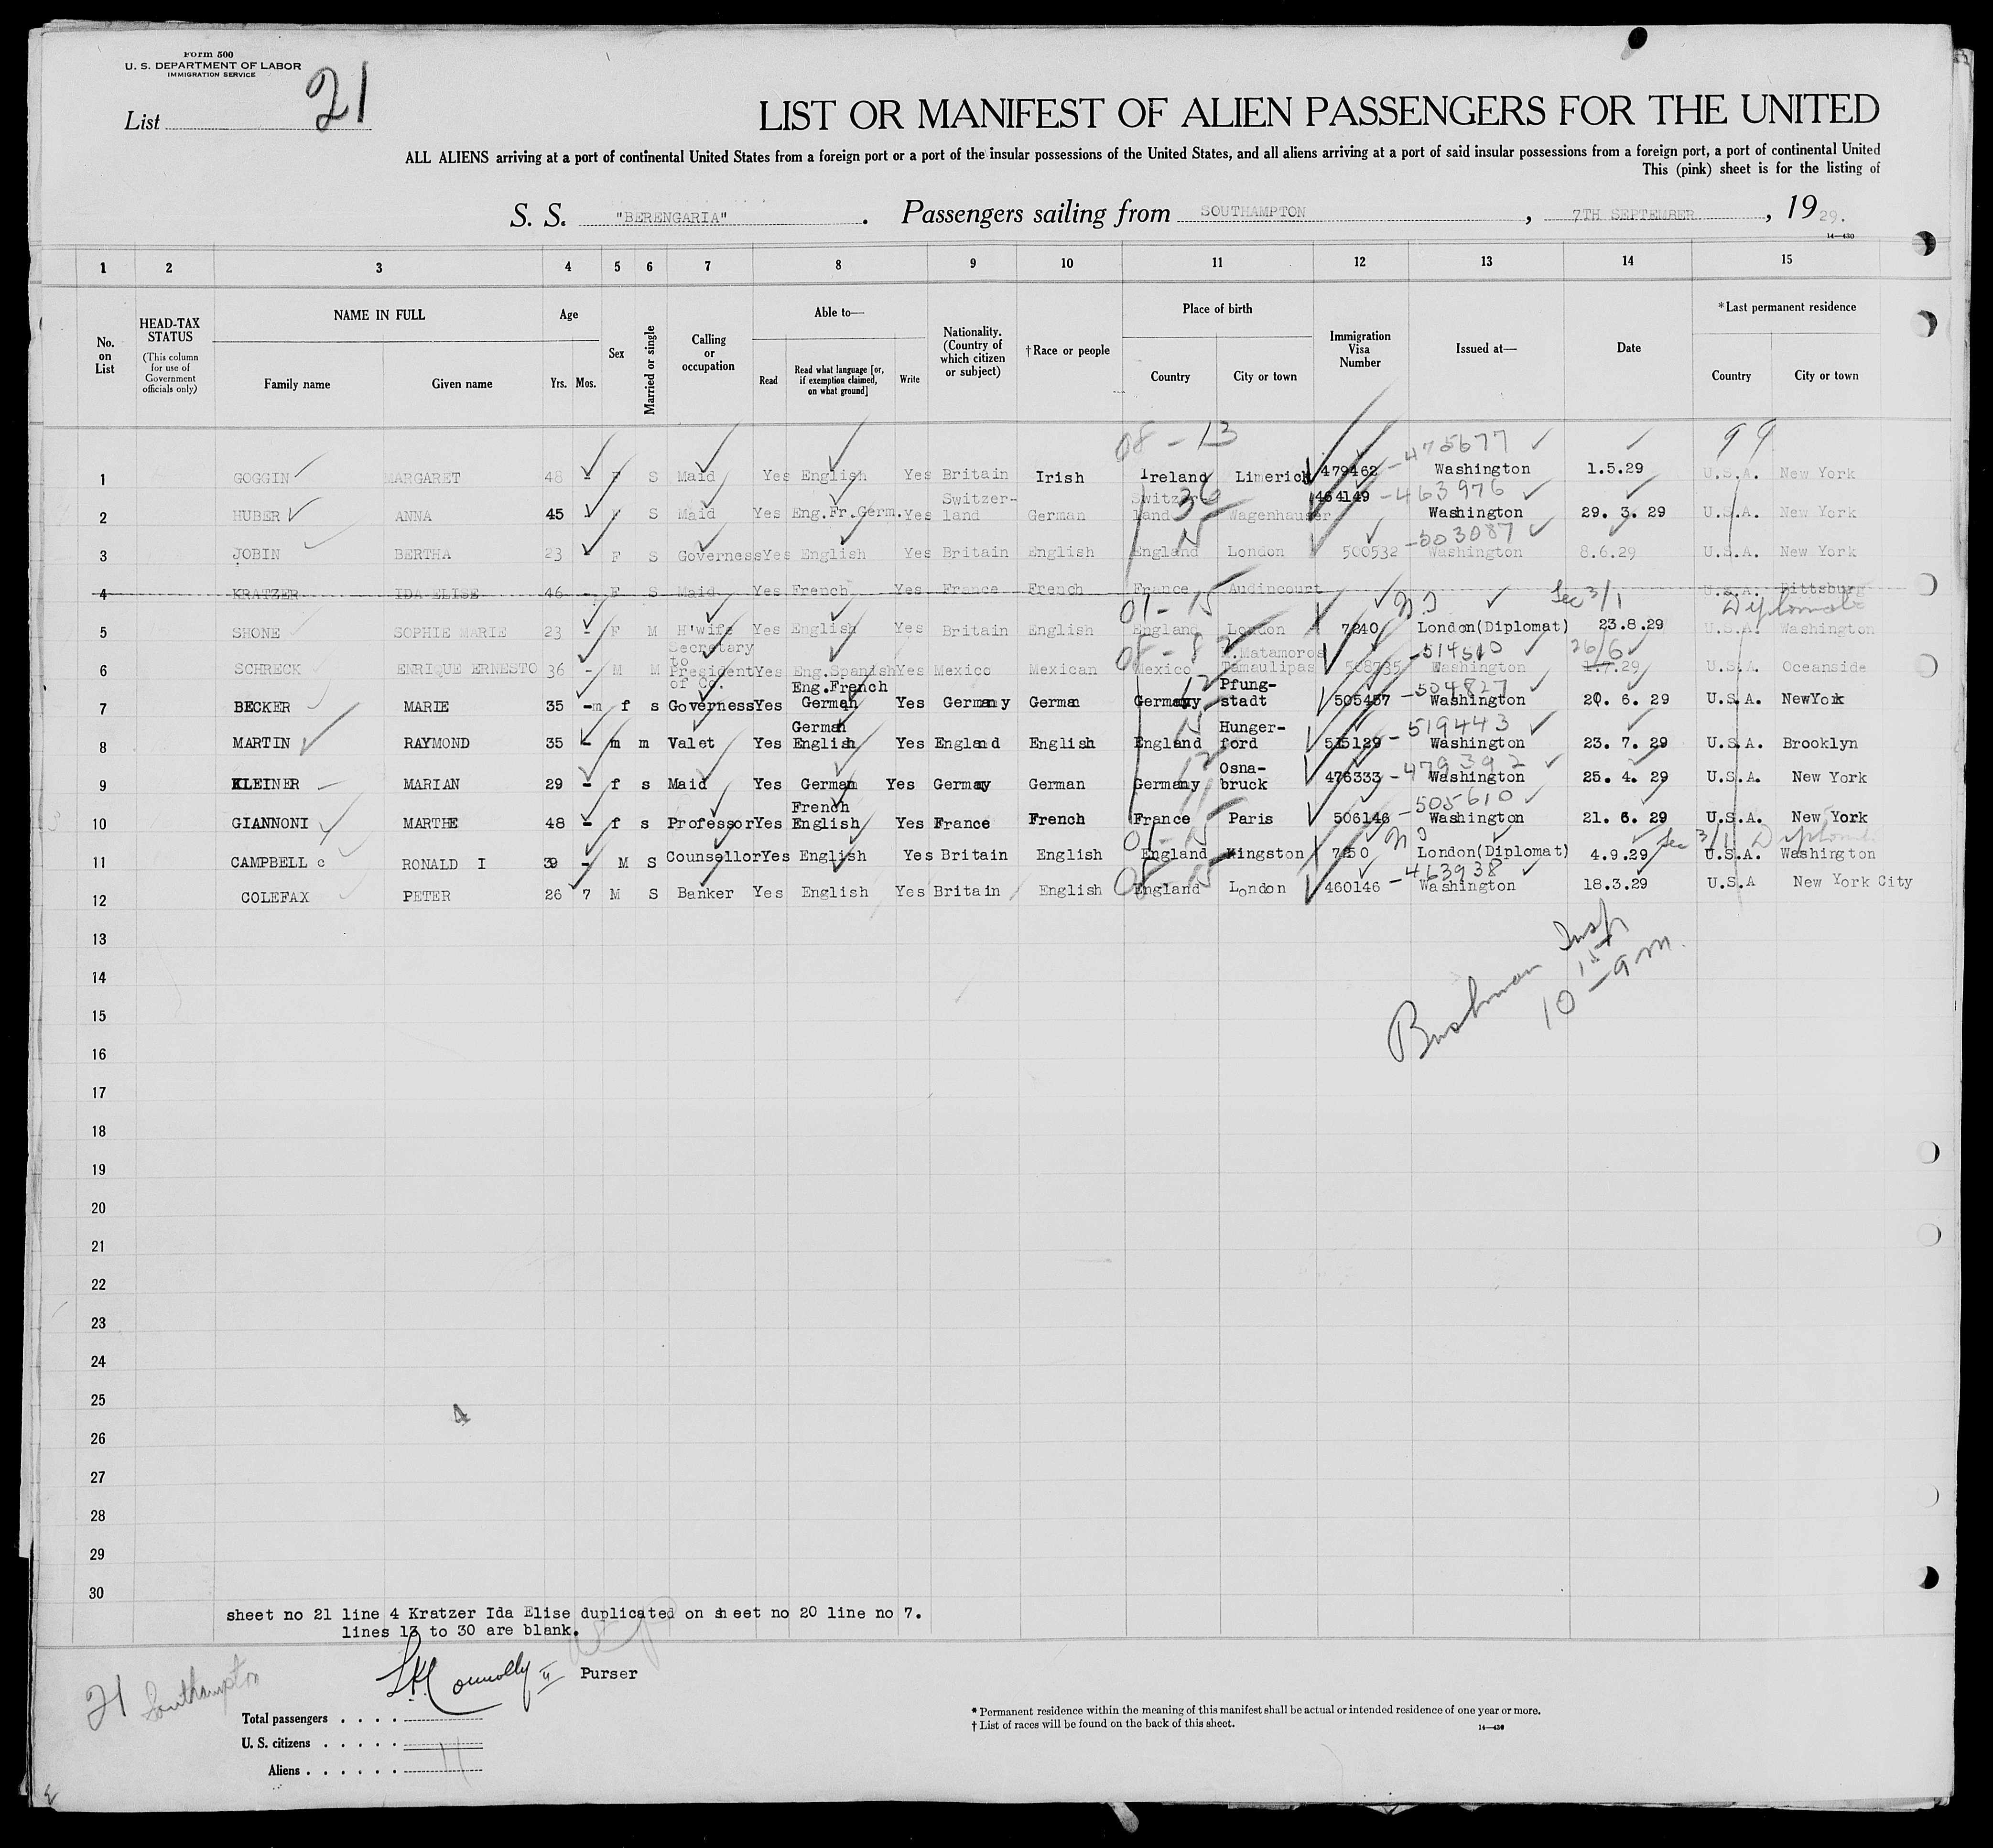 Form 500
U. S. DEPARTMENT OF LABOR
IMMIGRATION SERVICE
List 21
LIST OR MANIFEST OF ALIEN PASSENGERS FOR THE UNITED
ALL ALIENS arriving at a port of continental United States from a foreign port or a port of the insular possessions of the United States, and all aliens arriving at a port of said insular possessions from a foreign port, a port of continental United
This (pink) sheet is for the listing of
S. S. "BERENGARIA" . Passengers sailing from SOUTHAMPTON , 7TH SEPTEMBER , 1929.
14—430
1 2 3 4 5 6 7 8 9 10 11 12 13 14 15
No. on List
HEAD-TAX STATUS
(This column for use of Government officials only)
NAME IN FULL
Family name Given name
Age
Yrs. Mos.
Sex
Married or single
Calling or occupation
Able to—
Read
Read what language [or, if exemption claimed, on what ground]
Write
Nationality. (Country of which citizen or subject)
† Race or people
Place of birth
Country City or town
Immigration Visa Number
Issued at—
Date
*Last permanent residence
Country City or town
08 - 13 -475677 99
1 GOGGIN MARGARET 48 - F S Maid Yes English Yes Britain Irish Ireland Limerick 479462 Washington 1.5.29 U.S.A. New York
36 -463976
2 HUBER ANNA 45 - F S Maid Yes Eng.Fr.Germ. Yes Switzer-land German Switzerland Wagenhauser 464149 Washington 29. 3. 29 U.S.A. New York
15 -503087
3 JOBIN BERTHA 23 F S Governess Yes English Yes Britain English England London 500532 Washington 8.6.29 U.S.A. New York
4 KRATZER IDA ELISE 46 - F S Maid Yes French Yes France French France Audincourt U.S.A. Pittsburg
01 - 15 Sec 3/1 Diplomat
5 SHONE SOPHIE MARIE 23 - F M H'wife Yes English Yes Britain English England London 7240 London(Diplomat) 23.8.29 U.S.A. Washington
08 - 8 -514510 26/6
6 SCHRECK ENRIQUE ERNESTO 36 - M M Secretary to President of Co. Yes Eng.Spanish Yes Mexico Mexican Mexico Matamoros Tamaulipas 508735 Washington 1.7.29 U.S.A. Oceanside
12 -504827
7 BECKER MARIE 35 -m f s Governess Yes Eng.French German Yes Germany German Germany Pfung-stadt 505457 Washington 20. 6. 29 U.S.A. NewYork
15 -519443
8 MARTIN RAYMOND 35 - m m Valet Yes German English Yes England English England Hunger-ford 515129 Washington 23. 7. 29 U.S.A. Brooklyn
12 -479392
9 KLEINER MARIAN 29 - f s Maid Yes German Yes Germay German Germany Osna-bruck 476333 Washington 25. 4. 29 U.S.A. New York
11 -505610
10 GIANNONI MARTHE 48 - f s Professor Yes French English Yes France French France Paris 506146 Washington 21. 6. 29 U.S.A. New York
01 - 15 Sec 3/1 Diplomat
11 CAMPBELL c RONALD I 39 - M S Counsellor Yes English Yes Britain English England Kingston 7250 London(Diplomat) 4.9.29 U.S.A. Washington
08 15 -463938
12 COLEFAX PETER 26 7 M S Banker Yes English Yes Britain English England London 460146 Washington 18.3.29 U.S.A New York City
13
Bushman Insp
14
10 15 am.
15
16
17
18
19
20
21
22
23
24
25
4
26
27
28
29
30
sheet no 21 line 4 Kratzer Ida Elise duplicated on sheet no 20 line no 7.
lines 13 to 30 are blank.
Connolly II Purser
21 Southampton
Total passengers . . . .
U. S. citizens . . . . .
Aliens . . . . . . 11
* Permanent residence within the meaning of this manifest shall be actual or intended residence of one year or more.
† List of races will be found on the back of this sheet. 14—430